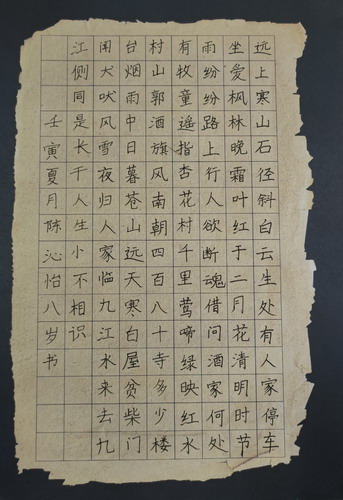 远上寒山石径斜白云生处有人家停车
坐爱枫林晚霜叶红于二月花清明时节
雨纷纷路上行人欲断魂借问酒家何处
有牧童遥指杏花村千里莺啼绿映红水
村山郭酒旗风南朝四百八十寺多少楼
台烟雨中日暮苍山远天寒白屋贫柴门
闻犬吠风雪夜归人家临九江水来去九
江侧同是长干人生小不相识
壬寅夏月陈沁怡八岁书